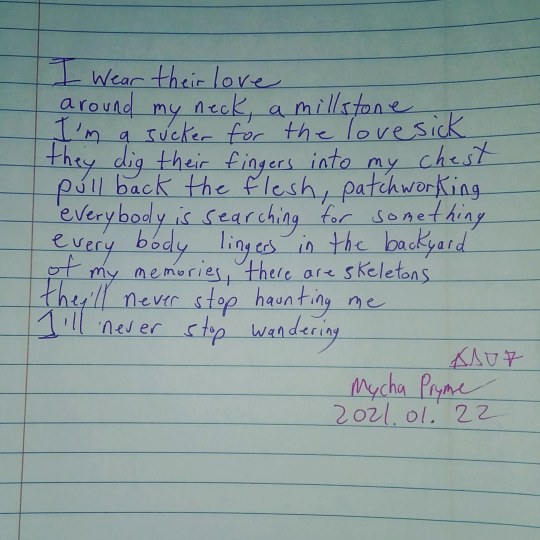 I wear their love
around my neck, a millstone
I'm a sucker for the love sick
they dig their fingers into my chest
pull back the flesh, patchworking
everybody is searching for something
every body lingers in the backyard
of my memories, there are skeletons
they'll never stop haunting me
I'll never stop wandering
Mycha Pryme
2021.01.22